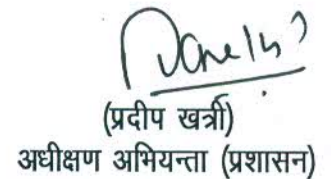 (प्रदीप खत्री)
अधीक्षण अभियन्ता (प्रशासन)